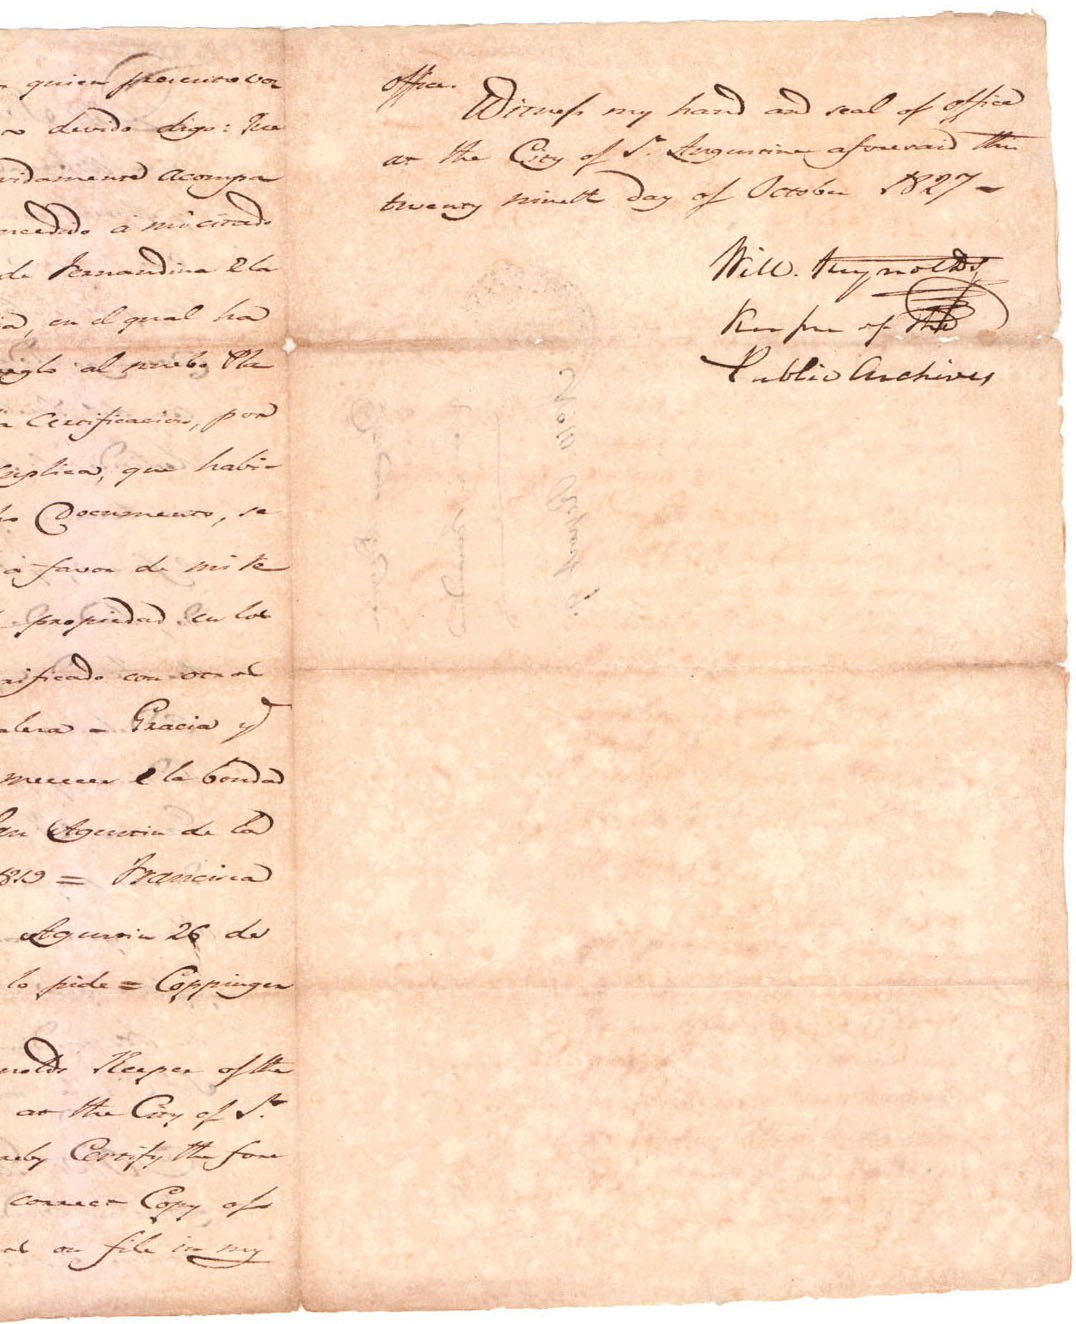 quien
devido digo: Que
vidamente acompa
ncedido a mi citado
de Fernandina de la
ia, en el qual ha
eglo al pueblo de la
a Certificacion, por
suplica, que habi-
ho Documento, se
a favor de mi
propiedad en los
rificado con otras
alera = Gracia y
merecer de la bondad
Sn Agustin de la
= Francisca
Agustin 26 de
lo pide = Coppinger
nolds Keeper of the
at the City of St
reby Certify the fore
correct Copy of
on file in my
office.
Witness my hand and seal of office
at the City of St Augustine aforesaid this
twenty nineth day of October 1827-
Will. Reynolds
Keeper of the
Public Archives